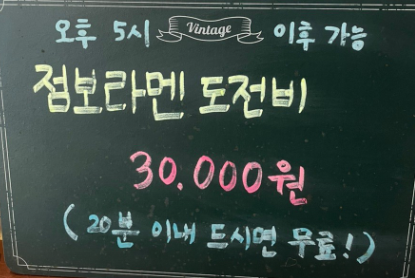 오후 5시 Vintage 이후 가능
점보라멘 도전비
30.000원
(20분 이내 드시면 무료!)